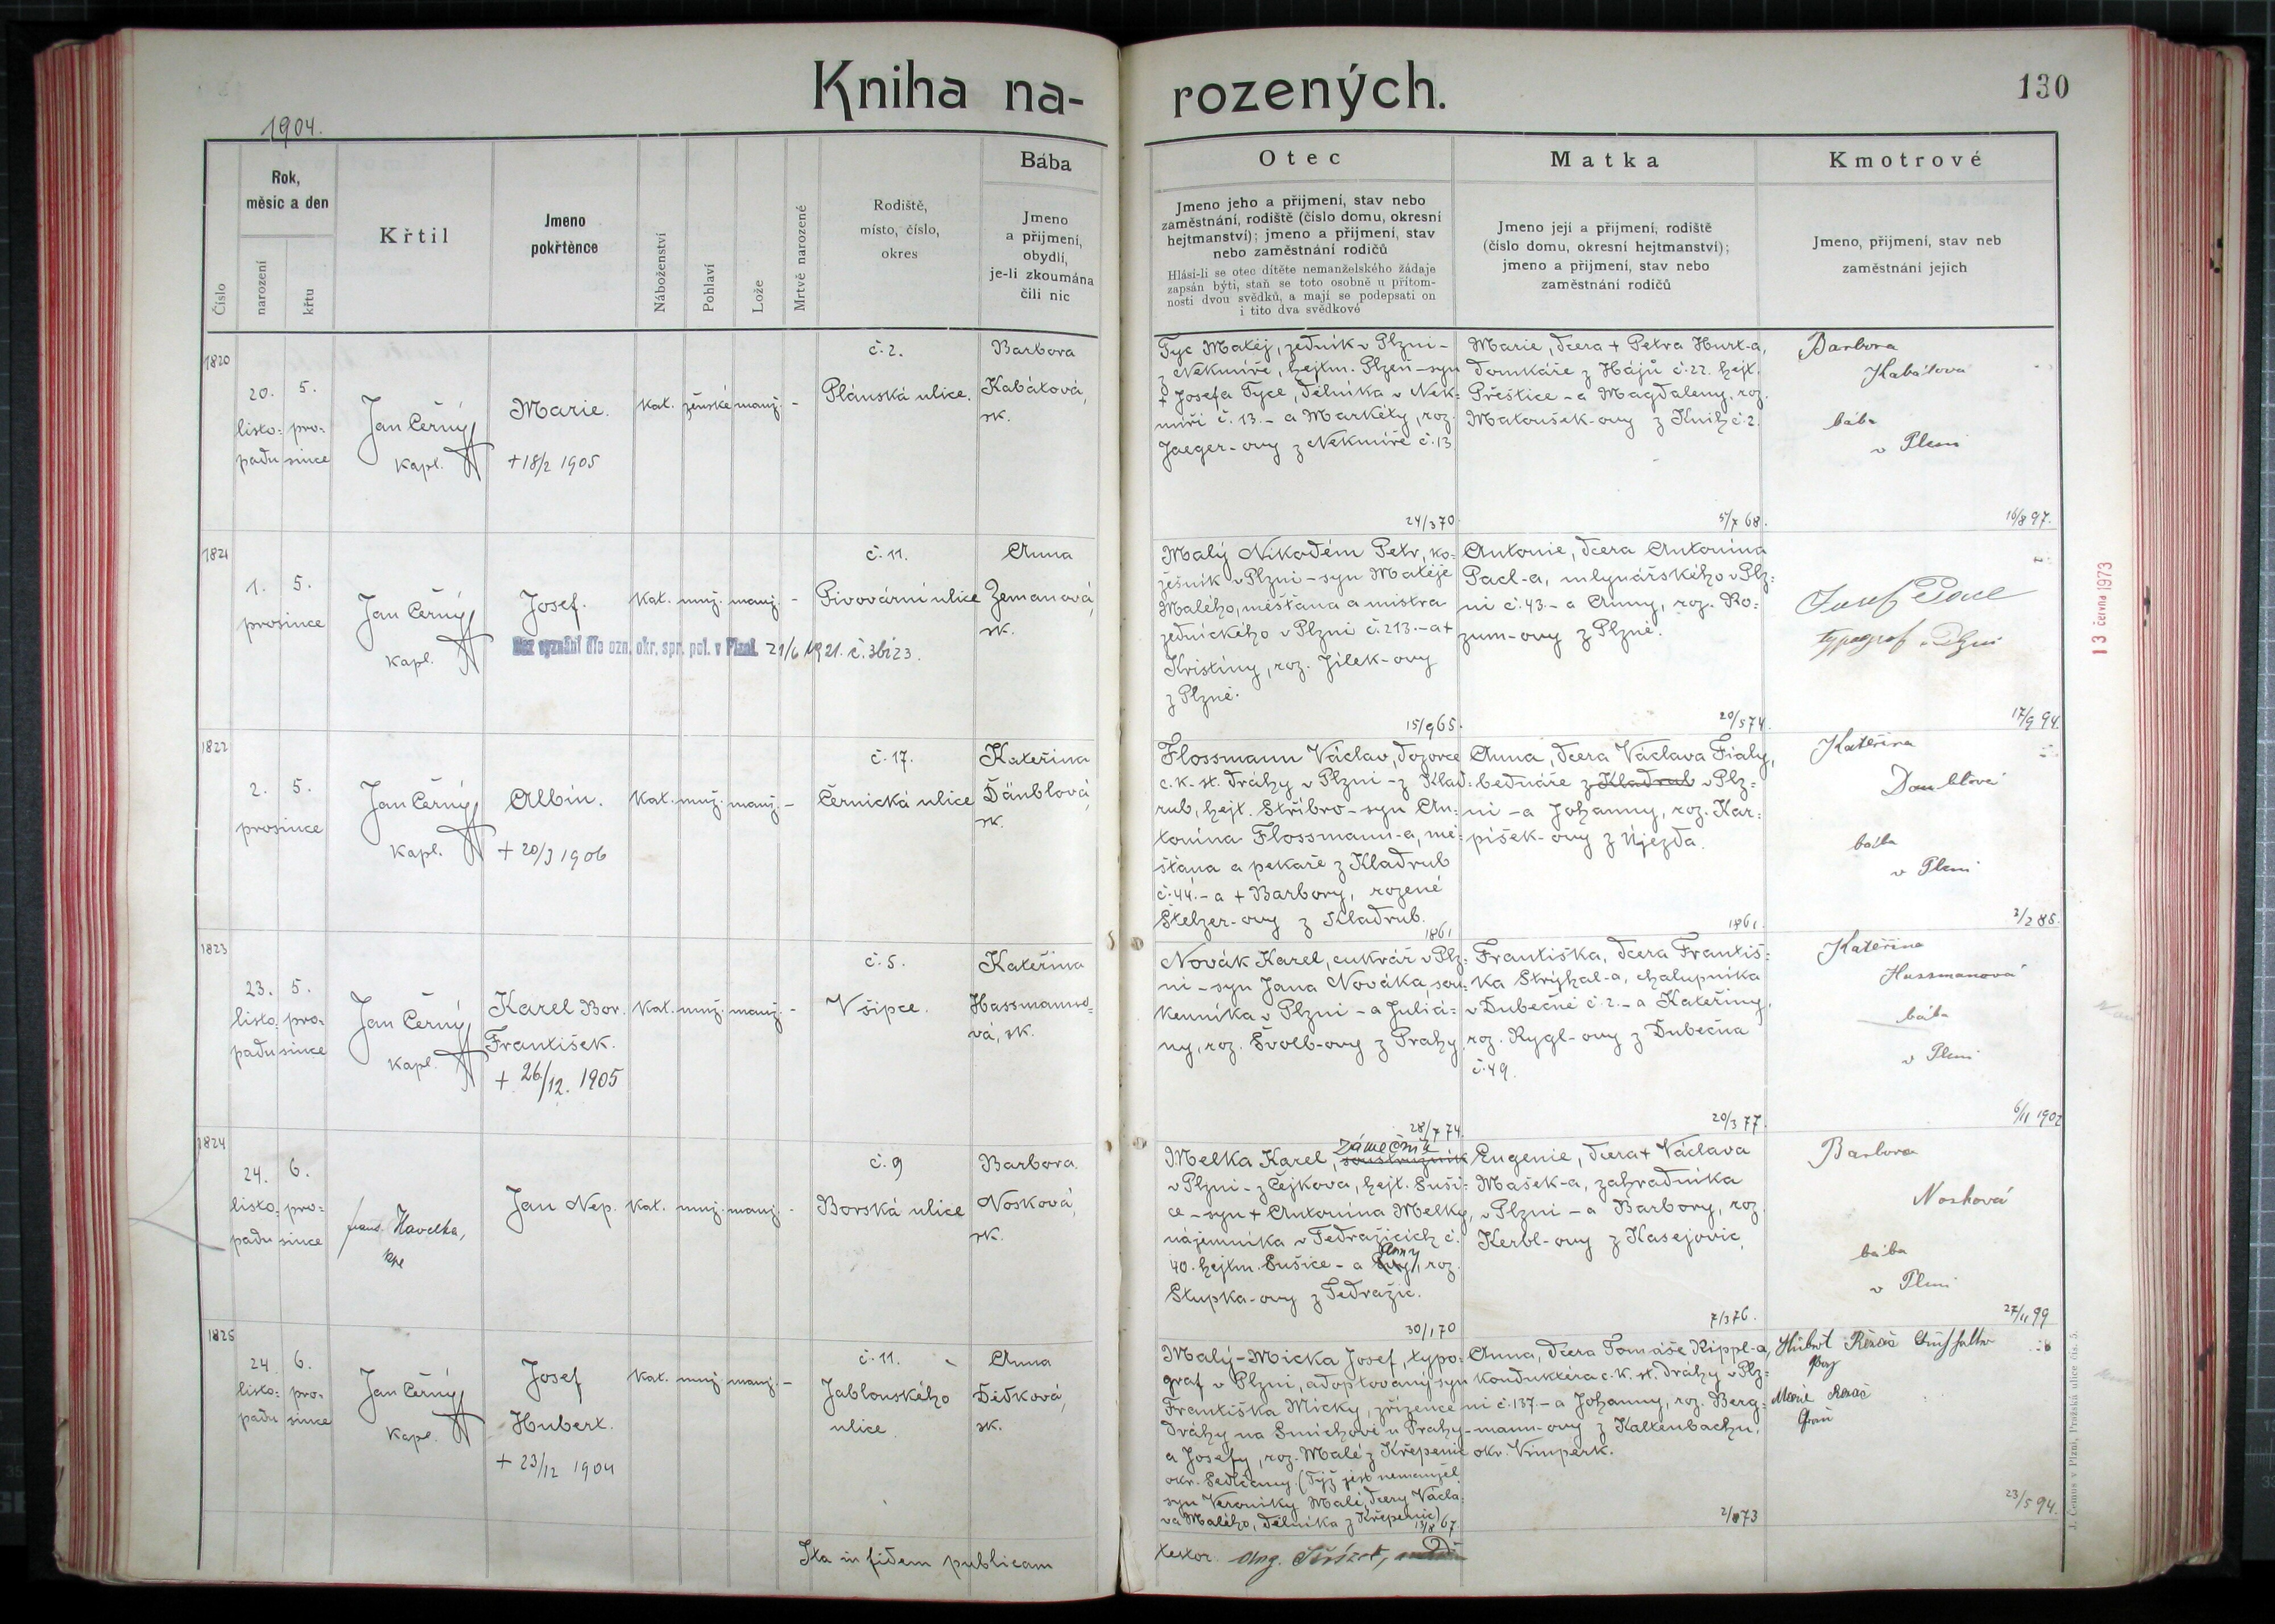 Kniha na-
rozených.
130
1904.
Číslo
Rok,
měsíc a den
narození
křtu
Křtil
Jmeno
pokřtěnce
Náboženství
Pohlaví
Lože
Mrtvě narozené
Rodiště,
místo, číslo,
okres
Bába
Jmeno
a přijmení,
obydlí,
je-li zkoumána
čili nic
Otec
Jmeno jeho a přijmení, stav nebo
zaměstnání, rodiště (číslo domu, okresní
hejtmanství); jmeno a přijmení, stav
nebo zaměstnání rodičů
Hlásí-li se otec dítěte nemanželského žádaje
zapsán býti, staň se toto osobně u přítom-
nosti dvou svědků, a mají se podepsati on
i tito dva svědkové
Matka
Jmeno její a přijmení, rodiště
(číslo domu, okresní hejtmanství);
jmeno a přijmení, stav nebo
zaměstnání rodičů
Kmotrové
Jmeno, přijmení, stav neb
zaměstnání jejich
1820
20.
listo-
padu
5.
pro-
since
Jan Černý
kapl.
Marie.
+ 18/2 1905
kat. ženské manž. -
č. 2.
Plánská ulice.
Barbora
Kabátová,
zk.
Tyc Matěj, zedník v Plzni -
z Nekmíře, hejtm. Plzeň - syn
+ Josefa Tyce, dělníka v Nek-
míři č. 13. - a Markéty, roz.
Jaeger-ovy z Nekmíře č. 13
24/3 70
Marie, dcera + Petra Hurt-a,
domkáře z Hájů č. 22. hejt.
Přeštice - a Magdaleny, roz.
Matoušek-ovy z Knih č. 2.
5/7 68.
Barbora
Kabátová
bába
v Plzni
16/8 97.
1821
1.
5.
prosince
Jan Černý
kapl.
Josef.
Bez vyznání dle ozn. okr. spr. pol. v Plzni. 21/6 1921. č. 36123.
kat. muž. manž. -
č. 11.
Pivovární ulice
Anna
Zemanová,
zk.
Malý Nikodém Petr, ko-
žešník v Plzni - syn Matěje
Malého, měšťana a mistra
zednického v Plzni č. 213. - a +
Kristiny, roz. Jílek-ovy
z Plzně.
15/9 65.
Antonie, dcera Antonína
Pacl-a, mlynářského v Plz-
ni č. 43. - a Anny, roz. Ro-
zum-ovy z Plzně.
20/5 74.
Josef Pacl
typograf v Plzni
17/9 94.
13 června 1973
1822
2.
5.
prosince
Jan Černý
kapl.
Albín.
+ 20/3 1906
kat. muž. manž. -
č. 17.
Černická ulice
Kateřina
Däublová,
zk.
Flossmann Václav, dozorce
c. k. st. dráhy v Plzni - z Klad-
rub, hejt. Stříbro - syn An-
tonína Flossmann-a, mě-
šťana a pekaře z Kladrub
č. 44. - a + Barbory, rozené
Stelzer-ovy z Kladrub.
1861
Anna, dcera Václava Fialy,
bednáře z Kladrub v Plz-
ni - a Johanny, roz. Kar-
píšek-ovy z Újezda.
1861.
Kateřina
Daublová
bába
v Plzni
2/2 88.
1823
23.
listo-
padu
5.
pro-
since
Jan Černý
kapl.
Karel Bor.
František.
+ 26/12. 1905
kat. muž. manž. -
č. 5.
V šipce.
Kateřina
Hassmanno-
vá, zk.
Novák Karel, cukrář v Plz-
ni - syn Jana Nováka, sou-
kenníka v Plzni - a Juliá-
ny, roz. Švolb-ovy z Prahy
28/7 74.
Františka, dcera Františ-
ka Strýhal-a, chalupníka
v Dubečné č. 2. - a Kateřiny,
roz. Rygl-ovy z Dubečna
č. 49.
20/3 77.
Kateřina
Hassmanová
bába
v Plzni
6/11 1902
1824
24.
listo-
padu
6.
pro-
since
Havelka,
Jan Nep.
kat. muž. manž. -
č. 9
Borská ulice
Barbora
Nosková,
zk.
zámečník
Melka Karel, soustružník
v Plzni - z Čejkova, hejt. Suši-
ce - syn + Antonína Melky,
nájemníka v Tedražicích č.
Anny
40. hejtm. Sušice - a roz.
Stupka-ovy z Tedražic.
30/1 70
Eugenie, dcera + Václava
Mašek-a, zahradníka
v Plzni - a Barbory, roz.
Kerbl-ovy z Kasejovic
7/3 76.
Barbora
Nosková
bába
v Plzni
27/11 99
1825
24.
listo-
padu
6.
pro-
since
Jan Černý
kapl.
Josef
Hubert.
+ 23/12 1904
kat. muž. manž. -
č. 11.
Jablonského
ulice
Anna
Dědková,
zk.
Malý-Micka Josef, typo-
graf v Plzni, adoptovaný syn
Františka Micky, zřízence
dráhy na Smíchově u Prahy -
a Josefy, roz. Malé z Křepenic
okr. Sedlčany. (Týž jest nemanžel.
syn Veroniky Malé, dcery Václa-
va Malého, dělníka z Křepenic)
13/8 67.
Anna, dcera Tomáše Rippl-a,
konduktéra c. k. st. dráhy v Plz-
ni č. 137. - a Johanny, roz. Berg-
mann-ovy z Kaltenbachu,
okr. Vimperk.
23/5 94.
Ita in fidem publicam
testor.
J. Čemus v Plzni, Pražská ulice čís. 5.